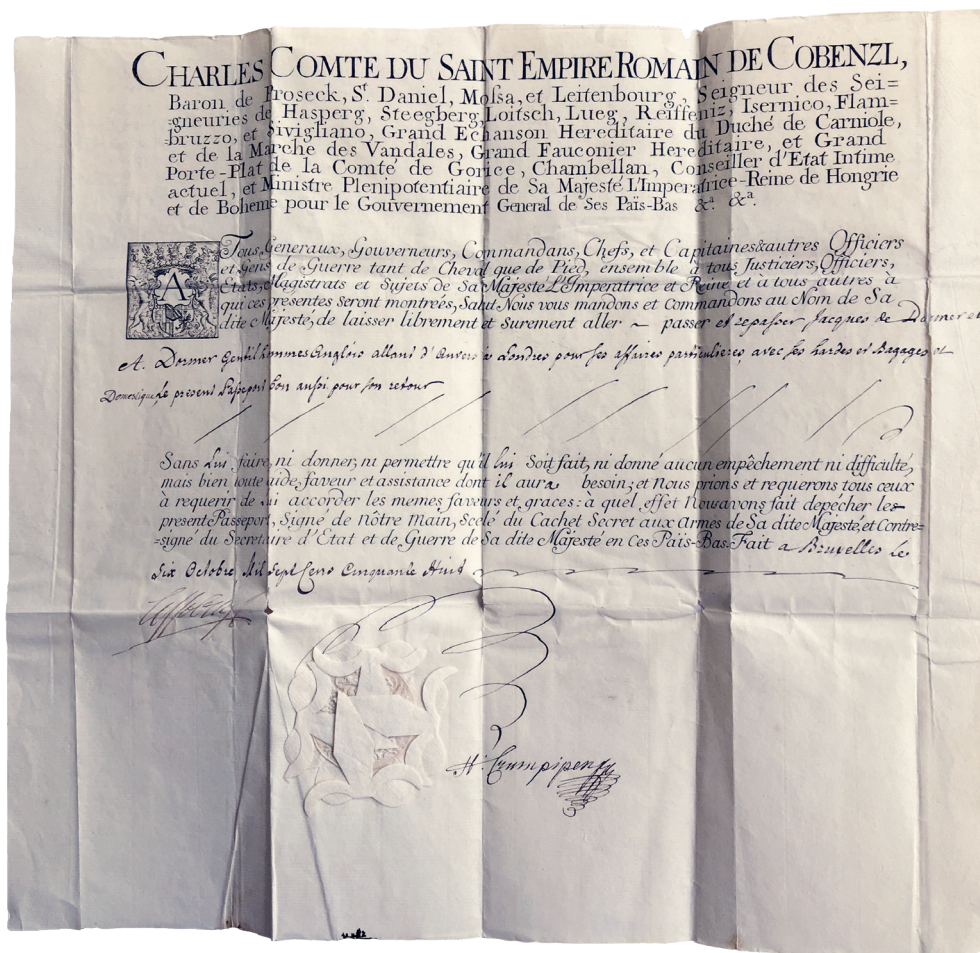 CHARLES COMTE DU SAINT EMPIRE ROMAIN DE COBENZL,
Baron de Proseck, S.t Daniel, Mossa, et Leitenbourg, Seigneur des Sei=
=gneuries de Hasperg, Steegberg, Loitsch, Lueg, Reiffeniz, Isernico, Flam=
=bruzzo, et Sivigliano, Grand Echanson Hereditaire du Duché de Carniole,
et de la Marche des Vandales, Grand Fauconier Hereditaire, et Grand
Porte-Plat de la Comté de Gorice, Chambellan, Conseiller d'Etat Intime
actuel, et Ministre Plenipotentiaire de Sa Majesté L'Imperatrice-Reine de Hongrie
et de Boheme pour le Gouvernement General de Ses Païs-Bas &.a &.a
A Tous Generaux, Gouverneurs, Commandans, Chefs, et Capitaines & autres Officiers
et Gens de Guerre tant de Cheval que de Pied, ensemble à tous Justiciers, Officiers,
Etats, Magistrats et Sujets de Sa Majesté L'Imperatrice et Reine et à tous autres à
qui ces presentes seront montreés, Salut Nous vous mandons et commandons au Nom de Sa
dite Majesté, de laisser librement et surement aller ~ passer et repasser Jacques de Dormer et
A. Dormer Gentilhommes Anglois allant d'Anvers à Londres pour ses affaires particulieres, avec ses hardes et Bagages et
Domestique, le present Passeport bon aussi pour son retour
Sans lui faire, ni donner, ni permettre qu'il lui Soit fait, ni donné aucun empêchement ni difficulté,
mais bien toute aide, faveur et assistance dont il aura besoin, et Nous prions et requerons tous ceux
à requerir de lui accorder les memes faveurs et graces: à quel effet Nous avons fait depécher les
present Passeport, Signé de nôtre main, Scelé du Cachet Secret aux Armes de Sa dite Majesté, et Contre=
=signé du Secretaire d'Etat et de Guerre de Sa dite Majesté en ces Païs-Bas Fait a Bruxelles le
Six Octobre Mil Sept Cens Cinquante Huit
H Crumpipen